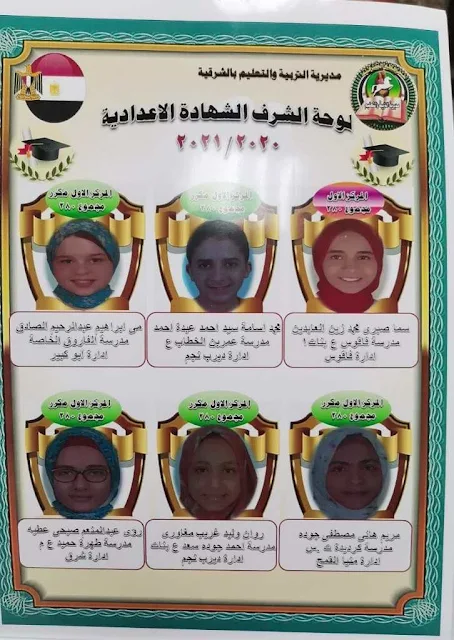 مديرية التربية والتعليم بالشرقية
لوحة الشرف الشهادة الاعدادية
٢٠٢١/٢٠٢٠
المركز الاول
مجموع ٢٨٠
سما صبرى محمد زين العابدين
مدرسة فاقوس ع بنات ١
ادارة فاقوس
المركز الاول مكرر
مجموع ٢٨٠
محمد اسامة سيد احمد عبدة احمد
مدرسة عمر بن الخطاب ع
ادارة ديرب نجم
المركز الاول مكرر
مجموع ٢٨٠
مي ابراهيم عبدالرحيم الصادق
مدرسة الفاروق الخاصة
ادارة ابو كبير
المركز الاول مكرر
مجموع ٢٨٠
مريم هانى مصطفى جوده
مدرسة كرديدة ت .س
ادارة منيا القمح
المركز الاول مكرر
مجموع ٢٨٠
روان وليد غريب مغاورى
مدرسة احمد جوده سعد ع بنات
ادارة ديرب نجم
المركز الاول مكرر
مجموع ٢٨٠
رؤى عبدالمنعم صبحى عطيه
مدرسة طهرة حميد ع م
ادارة شرق